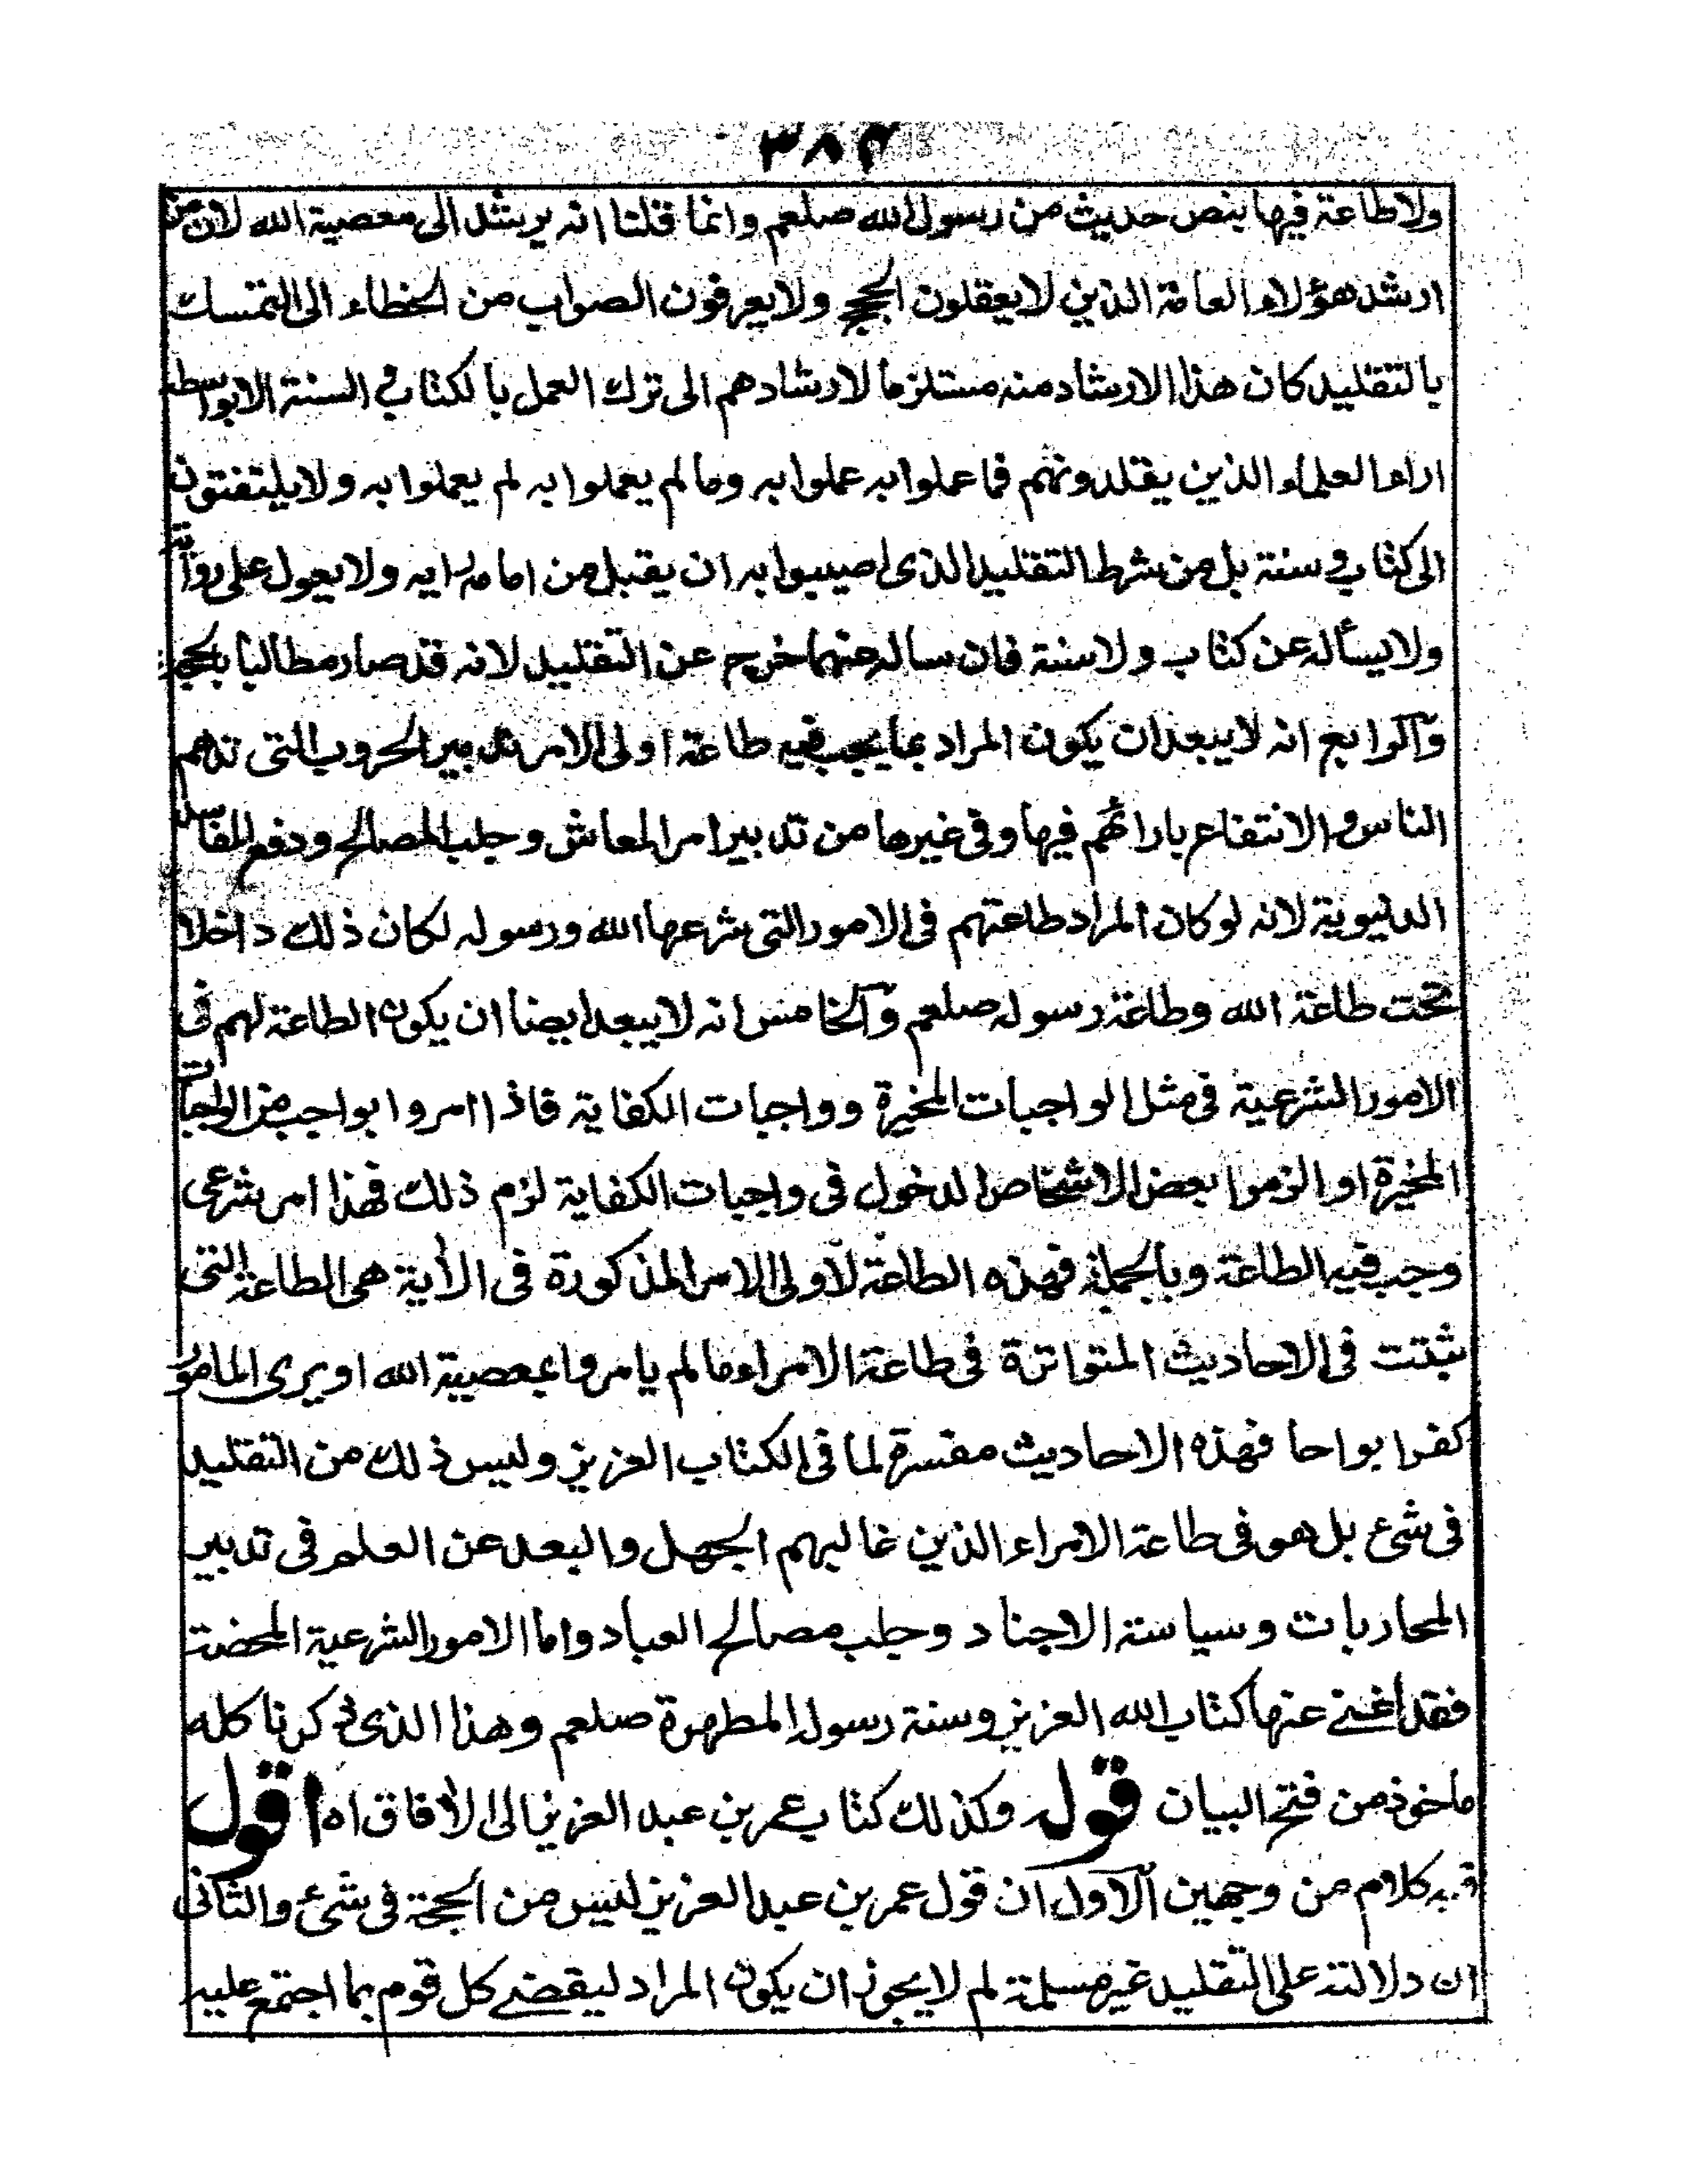 ٣٨٢
ولاطاعة فيها بنص حديث من رسول الله صلعم وانما قلنا انه يرشد الى معصية الله لان من
ارشد هؤلاء العامة الذين لا يعقلون الحجج ولا يعرفون الصواب من الخطاء الى التمسك
بالتقليد كان هذا الارشاد منه مستلزما لارشادهم الى ترك العمل بالكتاب و السنة الا بواسطة
اراء العلماء الذين يقلدونهم فما عملوا به عملوا به وما لم يعملوا به لم يعملوا به ولا يلتفتون
الى كتاب و سنة بل من شرط التقليد الذى اصيبوا به ان يقبل من امامه رايه ولا يعول على روايته
ولا يسأله عن كتاب ولا سنة فان ساله عنهما خرج عن التقليد لانه قد صار مطالبا بالحجة
وٓالرابع انه لا يبعد ان يكون المراد بما يجب فيه طاعة اولى الامر تدبير الحروب التى تدهم
الناس و الانتفاع بارائهم فيها و فى غيرها من تدبير امر المعاش وجلب المصالح ودفع المفاسد
الدنيوية لانه لو كان المراد طاعتهم فى الامور التى شرعها الله ورسوله لكان ذلك داخلا
تحت طاعة الله وطاعة رسوله صلعم وٓالخامس انه لا يبعد ايضا ان يكون الطاعة لهم فى
الامور الشرعية فى مثل الواجبات المخيرة وواجبات الكفاية فاذا امروا بواجب من الواجبات
المخيرة او الزموا بعض الاشخاص الدخول فى واجبات الكفاية لزم ذلك فهذا امر شرعى
وجب فيه الطاعة وبالجملة فهذه الطاعة لاولى الامر المذكورة فى الأية هى الطاعة التى
ثبتت فى الاحاديث المتواترة فى طاعة الامراء ما لم يامروا بمعصية الله او يرى المامور
كفرا بواحا فهذه الاحاديث مفسرة لما فى الكتاب العزيز وليس ذلك من التقليد
فى شئ بل هو فى طاعة الامراء الذين غالبهم الجهل والبعد عن العلم فى تدبير
المحاربات وسياسة الاجناد وجلب مصالح العباد واما الامور الشرعية المحضة
فقد اغنى عنها كتاب الله العزيز وسنة رسوله المطهرة صلعم وهذا الذى ذكرنا كله
مأخوذ من فتح البيان قوله وكذلك كتاب عمر بن عبد العزيز الى الأفاق اه اقول
فيه كلام من وجهين ٓالاول ان قول عمر بن عبد العزيز ليس من الحجة فى شئ والثانى
ان دلالته على التقليد غير مسلمة لم لا يجوز ان يكون المراد ليقضے كل قوم بما اجتمع عليه